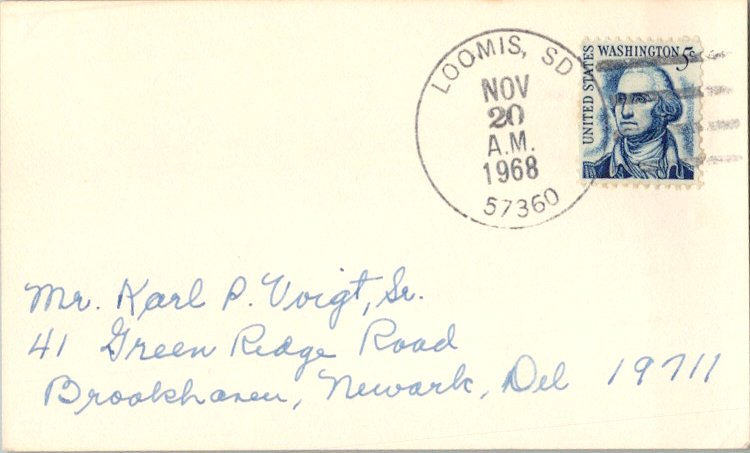 LOOMIS, SD
NOV
20
A.M.
1968
57360
UNITED STATES
WASHINGTON 5c
Mr. Karl P. Voigt, Sr.
41 Green Ridge Road
Brookhaven, Newark, Del 19711